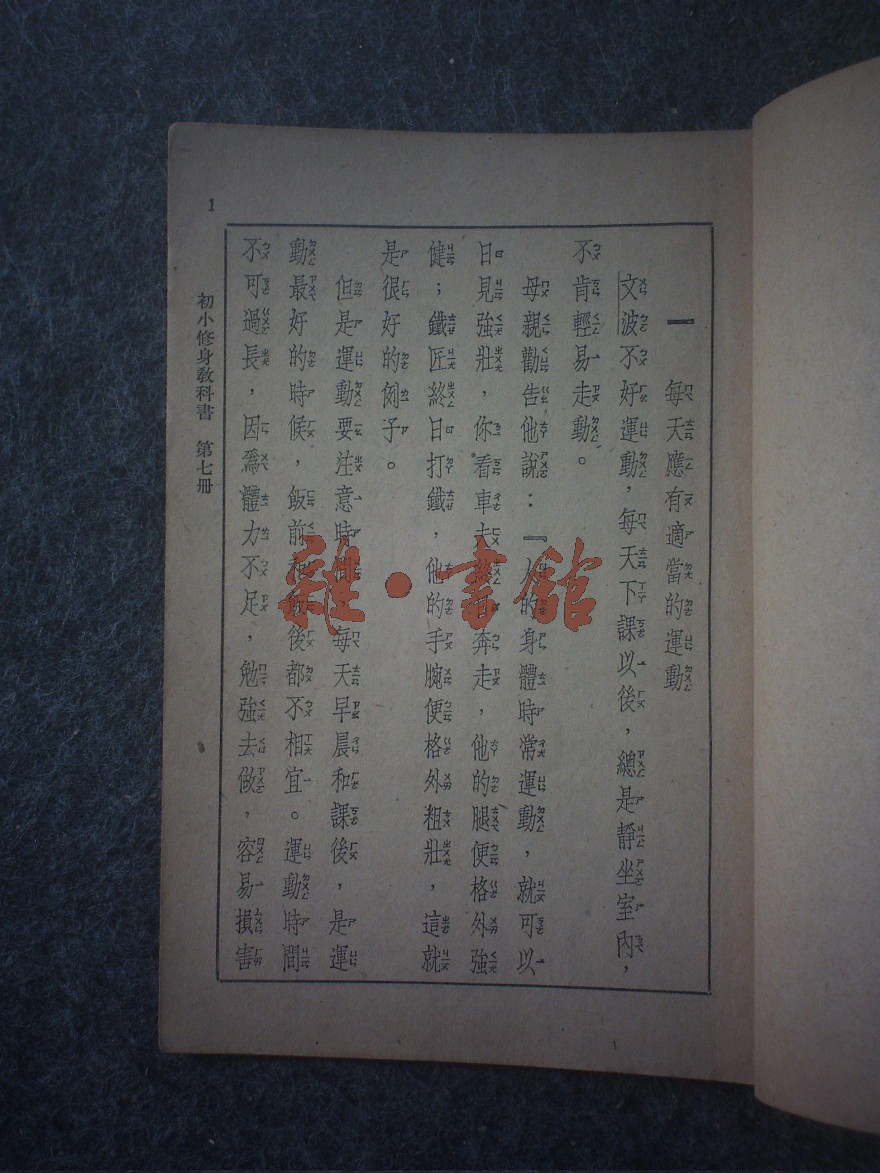 一　每天應有適當的運動
文波不好運動，每天下課以後，總是靜坐室內，
不肯輕易走動。
母親勸告他說：『人的身體時常運動，就可以
日見強壯，你看車夫終日奔走，他的腿便格外強
健；鐵匠終日打鐵，他的手腕便格外粗壯，這就
是很好的例子。
但是運動要注意時間，每天早晨和課後，是運
動最好的時候，飯前和飯後都不相宜。運動時間
不可過長，因爲體力不足，勉強去做，容易損害
初小修身教科書　第七冊
1
雜·書館